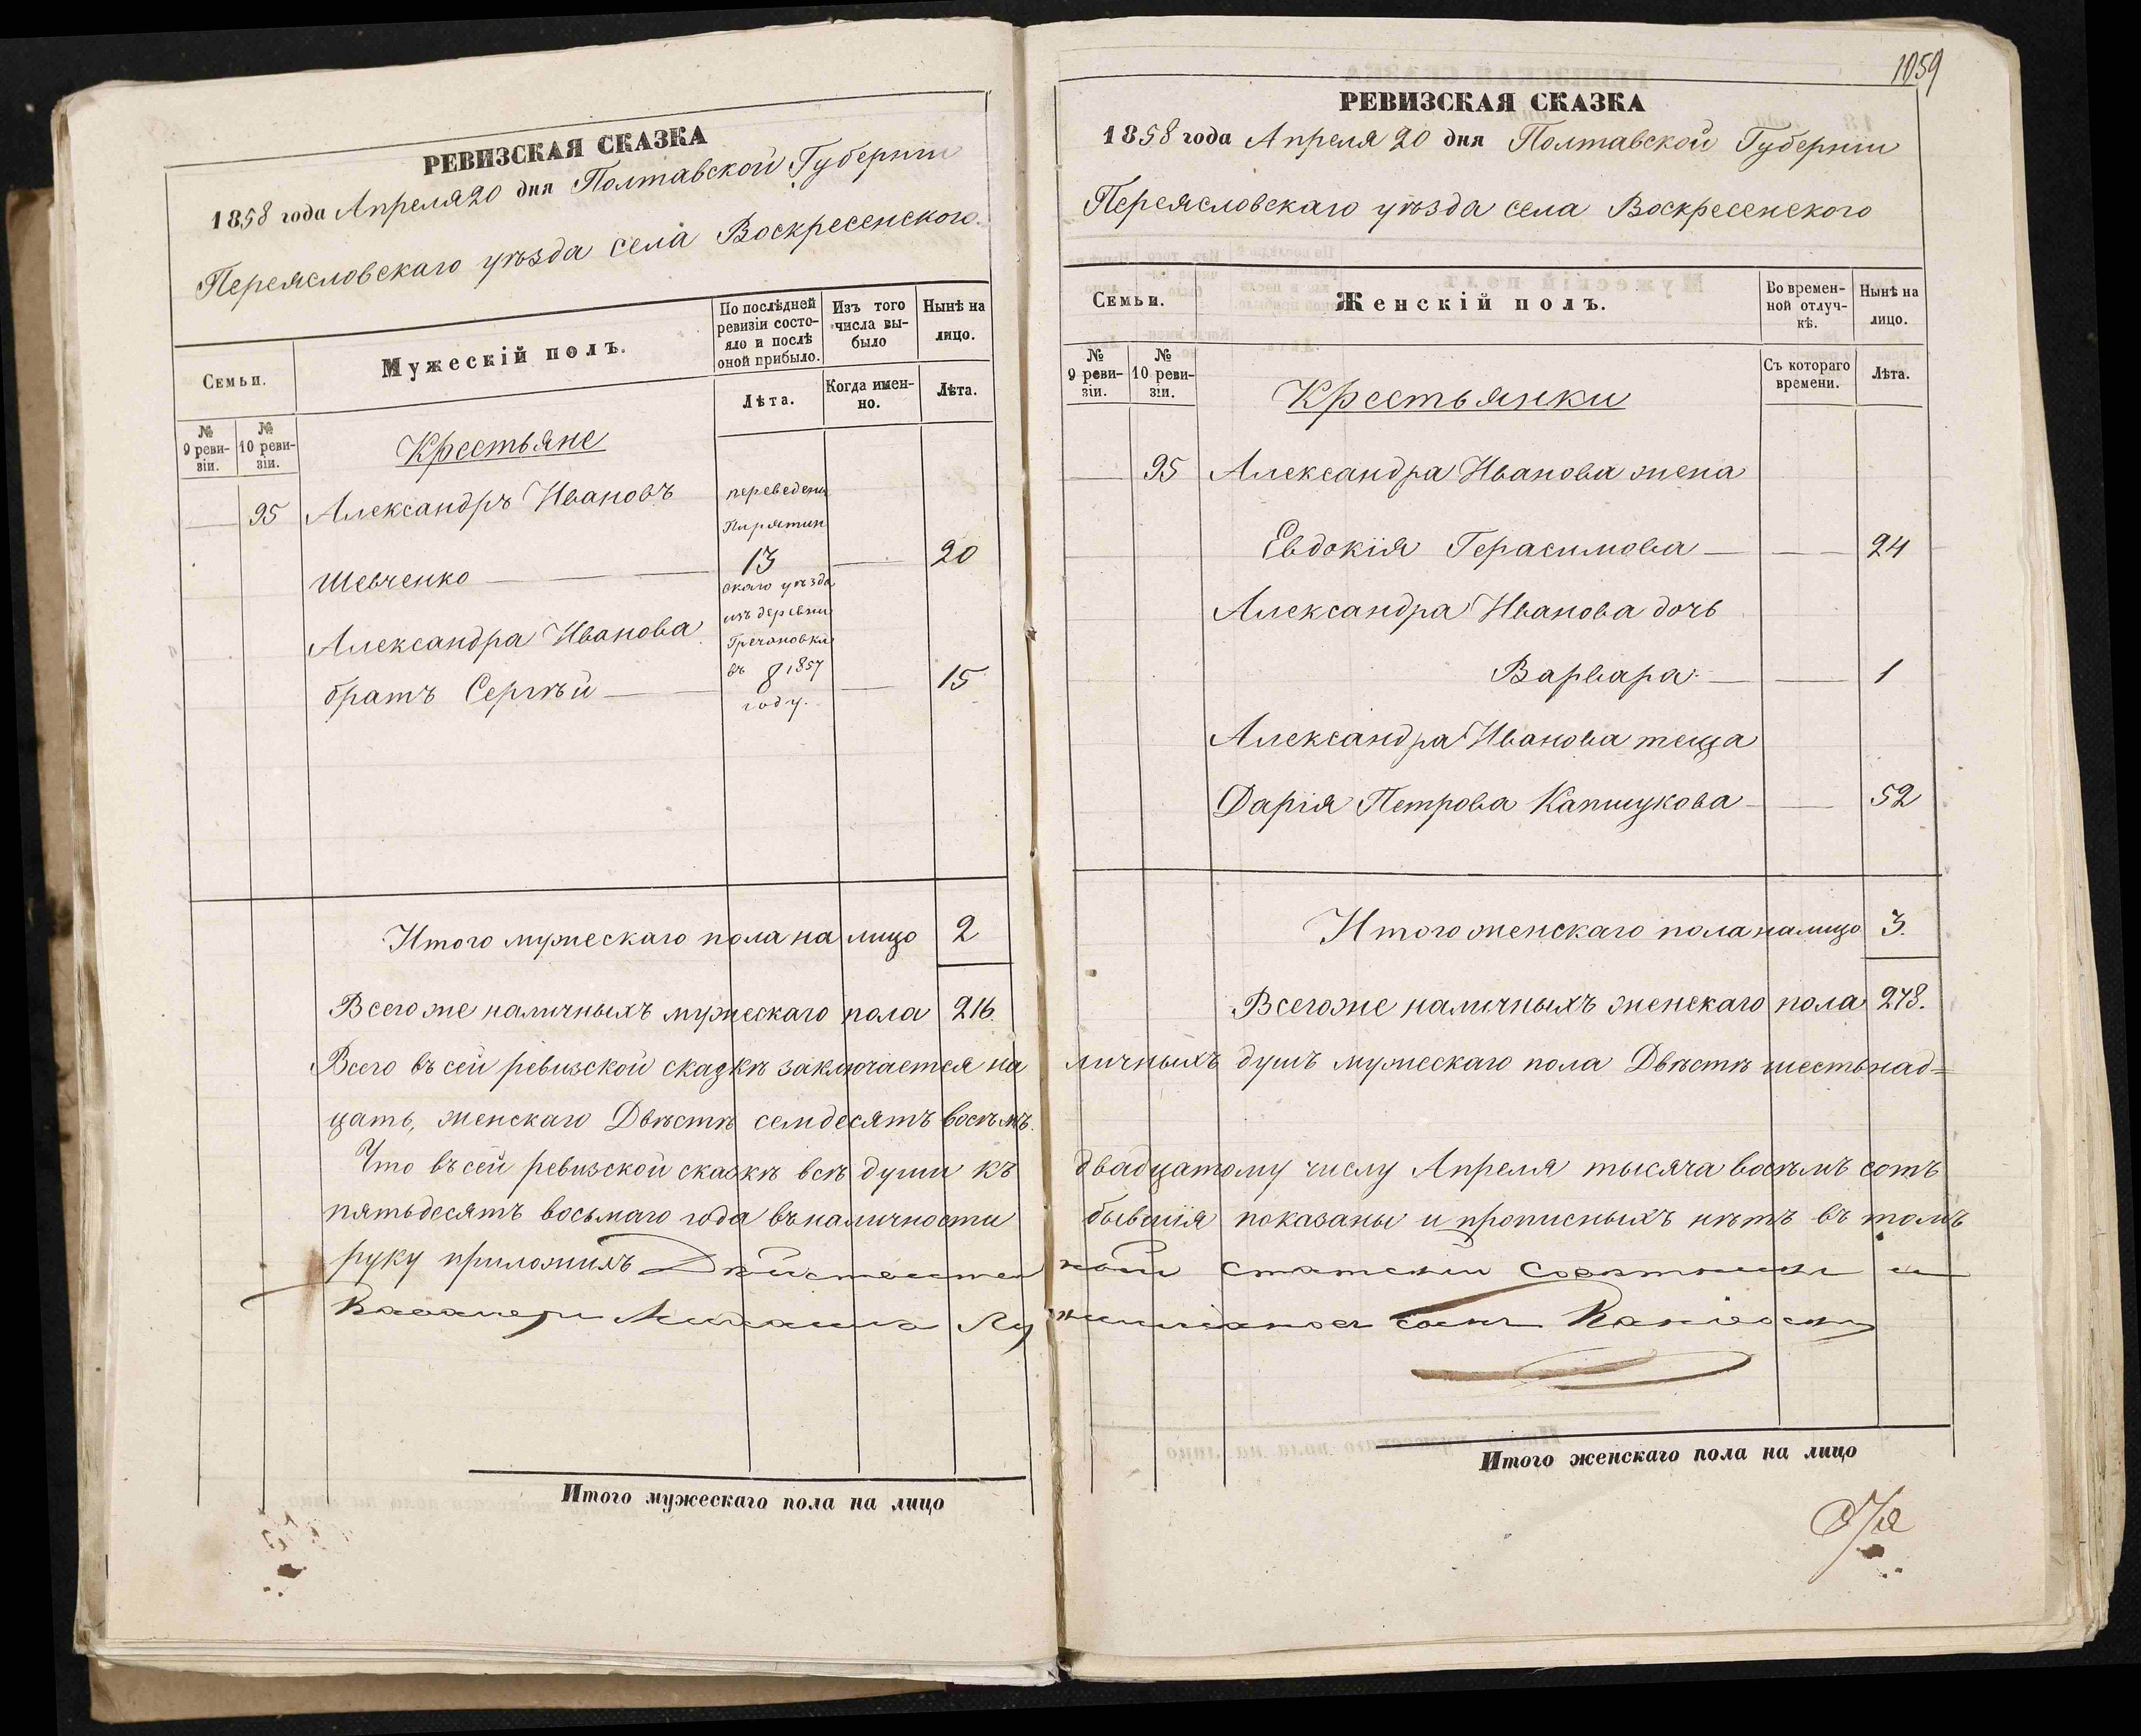 РЕВИЗСКАЯ СКАЗКА
1858 года Апреля 20 дня Полтавской Губерніи
Переясловскаго уѣзда села Воскресенского.
Семьи.
Мужескій полъ.
По послѣдней ревизіи состояло и послѣ оной прибыло.
Изъ того числа выбыло
Нынѣ на лицо.
Лѣта.
Когда именно.
Лѣта.
№ 9 ревизіи.
№ 10 ревизіи.
Крестьяне
95 Александръ Ивановъ
переведены
Пирятин
Шевченко 13 20
скаго уѣзда
изъ деревни
Александра Иванова
Гречановки
въ 1857
братъ Сергѣй 8 15
году.
Итого мужескаго пола на лицо 2
Всего же наличныхъ мужескаго пола 216
Всего въ сей ревизской сказкѣ заключается на
цать, женскаго Двѣстѣ семдесятъ восѣмъ.
Что въ сей ревизской сказкѣ всѣ души къ
пятьдесятъ восьмаго года въ наличности
руку приложилъ Действител
Кавалеръ Михаилъ Лу
Итого мужескаго пола на лицо
1059
РЕВИЗСКАЯ СКАЗКА
1858 года Апреля 20 дня Полтавской Губерніи
Переясловскаго уѣзда села Воскресенского
Семьи.
Женскій полъ.
Во временной отлучкѣ.
Нынѣ на лицо.
№ 9 ревизіи.
№ 10 ревизіи.
Съ котораго времени.
Лѣта.
Крестьянки
95 Александра Иванова жена
Евдокія Герасимова 24
Александра Иванова дочь
Варвара 1
Александра Иванова теща
Дарія Петрова Капшукова 52
Итого женскаго пола налицо 3.
Всего же наличныхъ женскаго пола 278.
личныхъ душъ мужескаго пола Двѣстѣ шестьнад=
двадцатому числу Апреля тысяча восѣмъ сотъ
бывшія показаны и прописныхъ нѣтъ въ томъ
ной статскій Советникъ и
сынъ
Итого женскаго пола на лицо